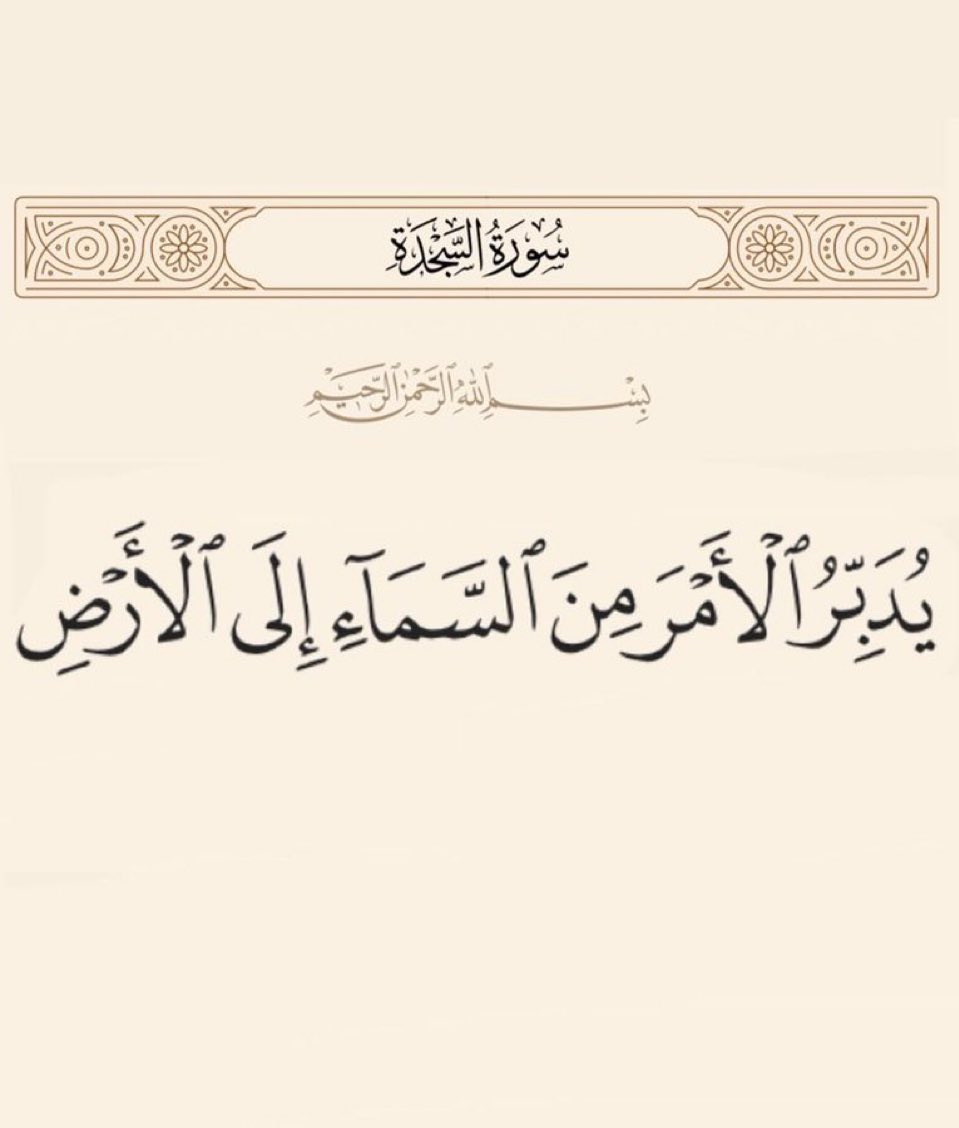 سُورَةُ السَّجْدَةِ
بِسْمِ ٱللَّهِ ٱلرَّحْمَٰنِ ٱلرَّحِيمِ
يُدَبِّرُ ٱلْأَمْرَ مِنَ ٱلسَّمَآءِ إِلَى ٱلْأَرْضِ